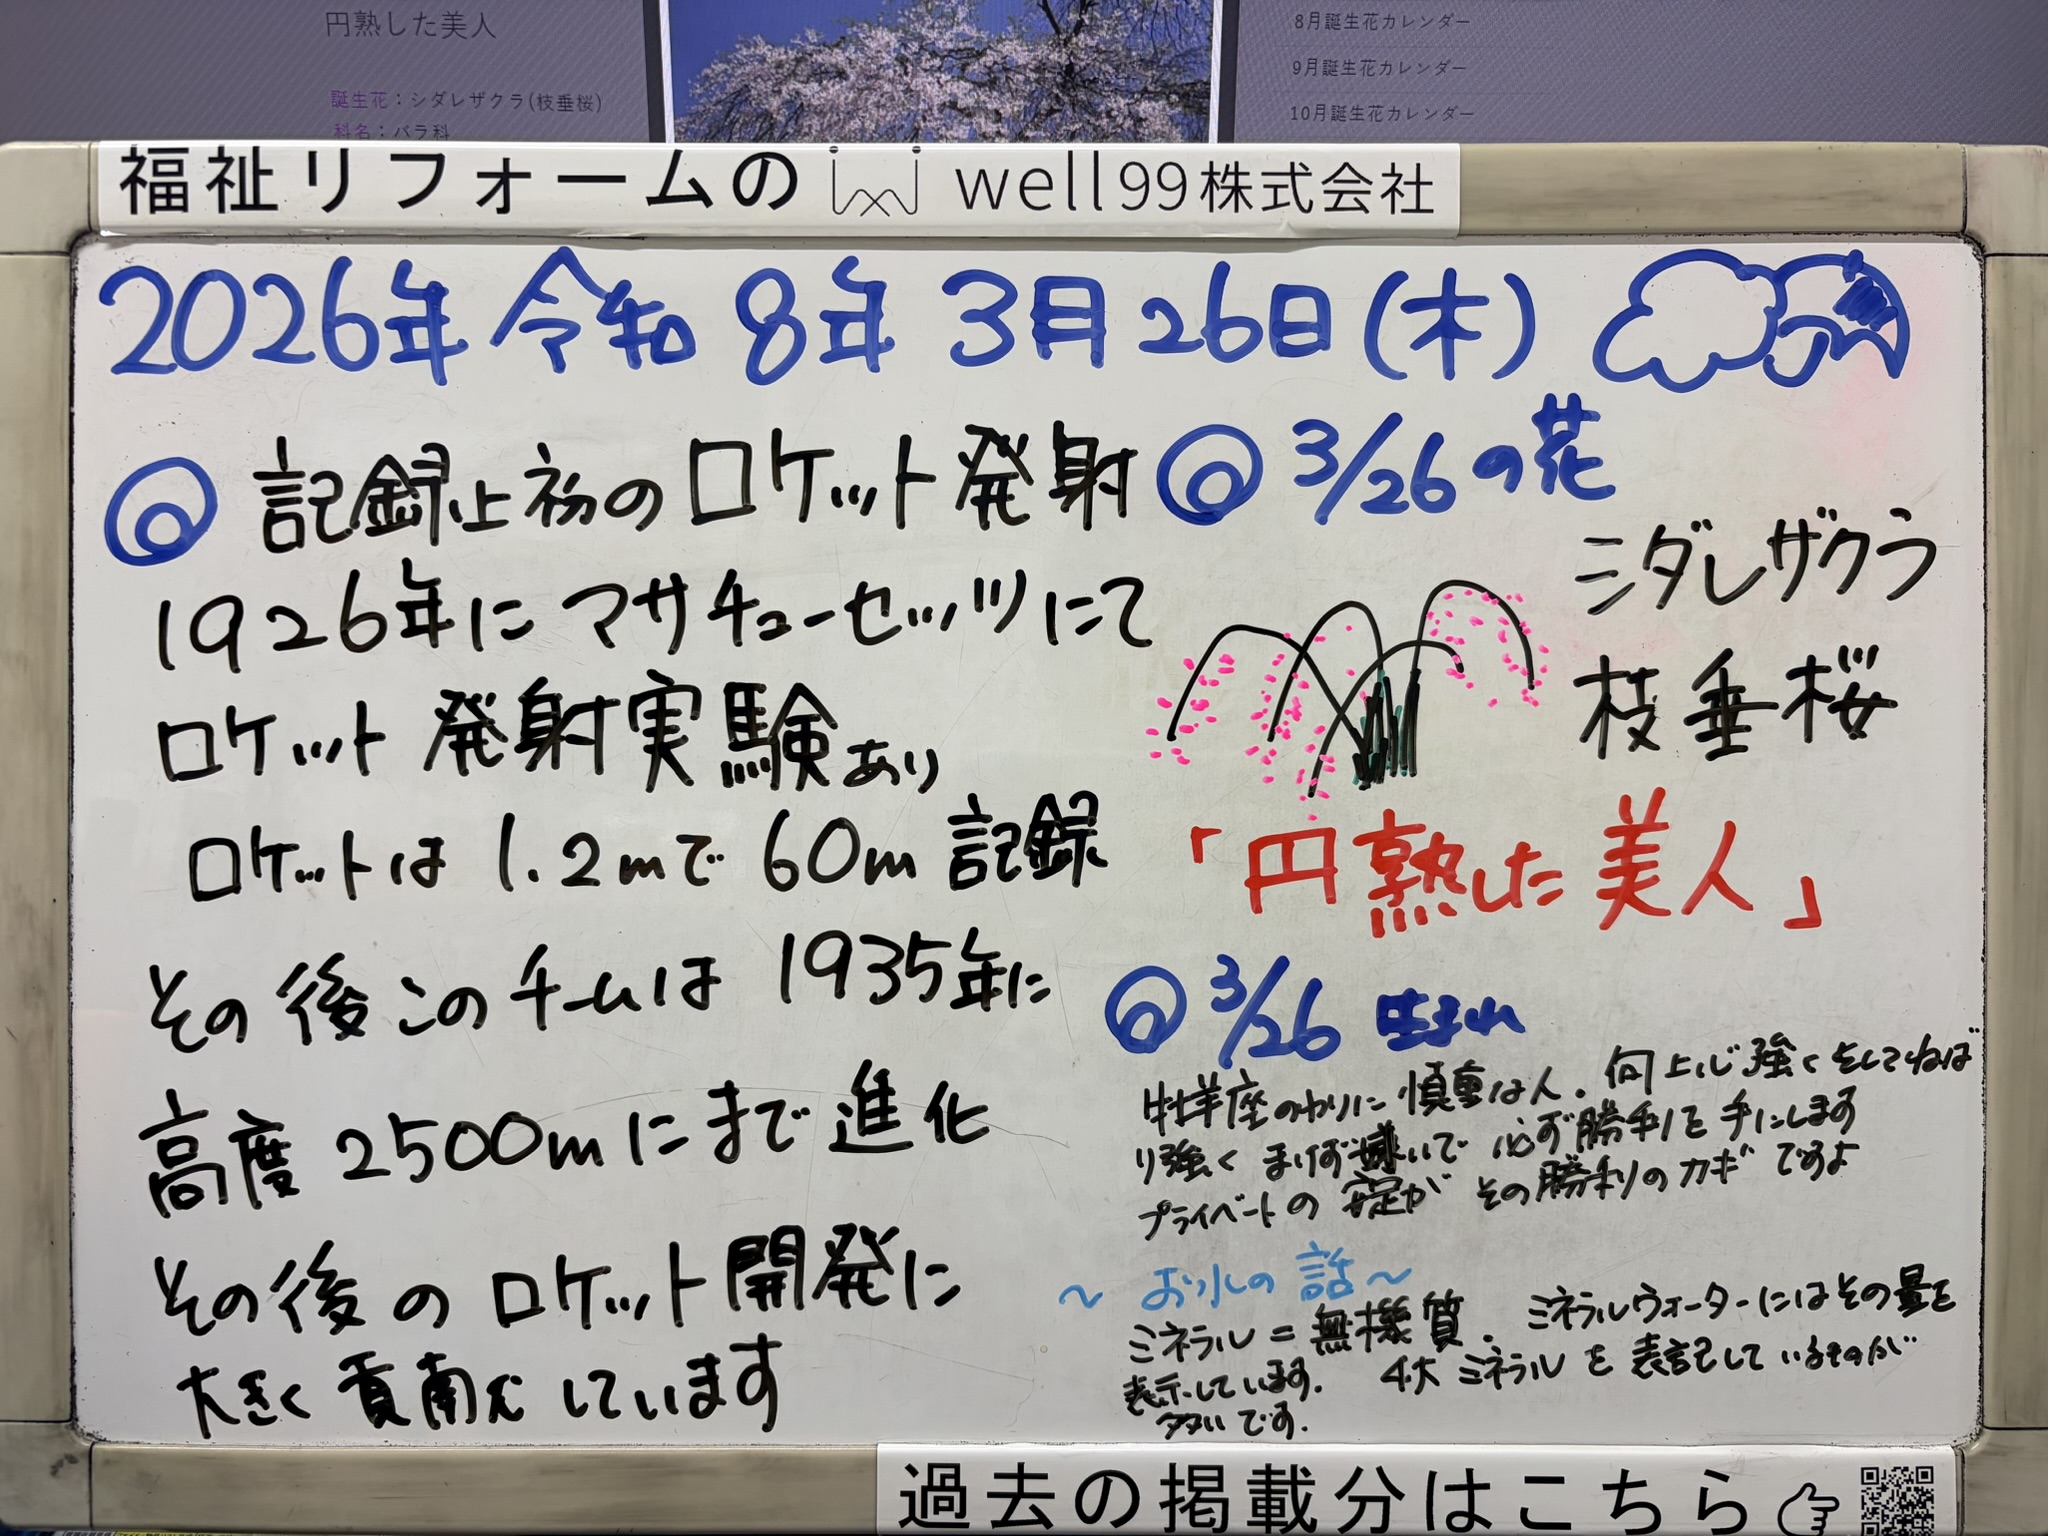 円熟した美人
誕生花：シダレザクラ(枝垂桜)
科名：バラ科
8月誕生花カレンダー
9月誕生花カレンダー
10月誕生花カレンダー
福祉リフォームの well99株式会社
2026年 令和8年 3月26日(木)
記録上初のロケット発射
1926年にマサチューセッツにて
ロケット発射実験あり
ロケットは1.2mで60m記録
その後このチームは1935年に
高度2500mにまで進化
その後のロケット開発に
大きく貢献しています
3/26の花
シダレザクラ
枝垂桜
「円熟した美人」
3/26生まれ
牡羊座のわりに慎重な人. 向上心強くそしてねば
り強くまけず嫌いで必ず勝利を手にします
プライベートの安定がその勝利のカギですよ
～お水の話～
ミネラル＝無機質. ミネラルウォーターにはその量を
表示しています. 4大ミネラルを表記しているものが
多いです.
過去の掲載分はこちら